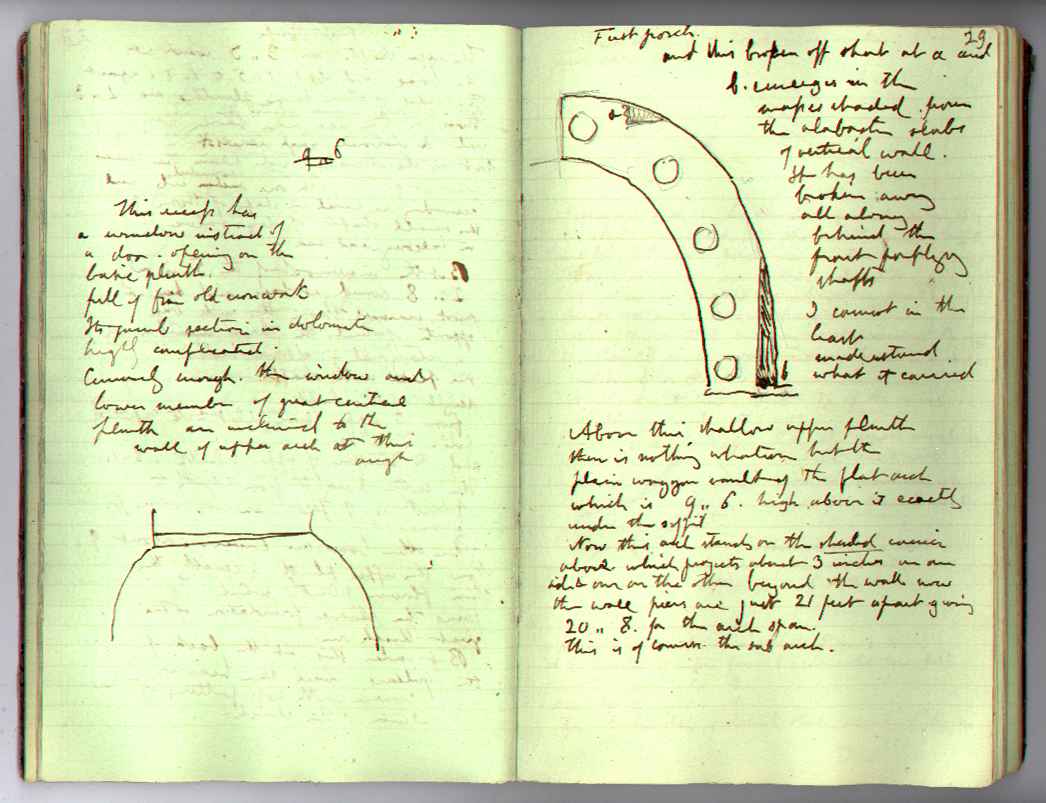 9 „ 6
This recess has
a window instead of
a door. opening on the
basic plinth.
full of fine old ironwork
Its jamb section in dolomite
highly complicated.
Curiously enough. the window and
lower member of great central
plinth are inclined to the
wall of upper arch at this
angle
First porch.
29
and this broken off short at a and
b. emerges in the
shaded from
the alabaster slabs
of vertical wall.
It has been
broken away
all along
behind the
front porphyry
shafts
I cannot in the
least
understand
what it carried
a
b
Above this shallow upper plinth
there is nothing whatever but the
plain waggon vaulting of the flat arch
which is 9 „ 6. high above it exactly
under the soffit
Now this arch stands on the shaded cornice
above which projects about 3 inches on one
side & one on the other beyond the wall
the wall piers are just 21 feet apart giving
20 „ 8. for the arch span.
This is of course the sub arch.